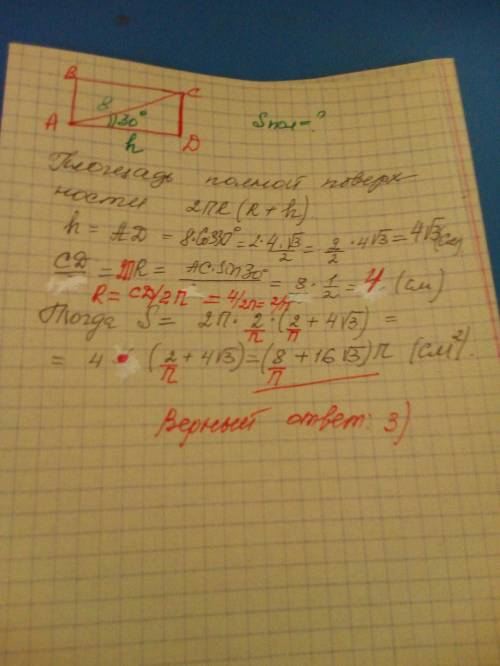 B
8
C
Sпол=?
A
30°
h
D
Площадь полной поверх
ности 2ПR(R+h)
h = AD = 8·Cos30° = 2·4·√3/2 = 2/2·4√3 = 4√3 (см)
CD = 2ПR = AC·sin30° = 8·1/2 = 4. (см)
R = CD/2П = 4/2П = 2/П
Тогда S = 2П·2/П·(2/П + 4√3) =
= 4·(2/П + 4√3) = (8/П + 16√3)П (см²).
Верный ответ: 3)